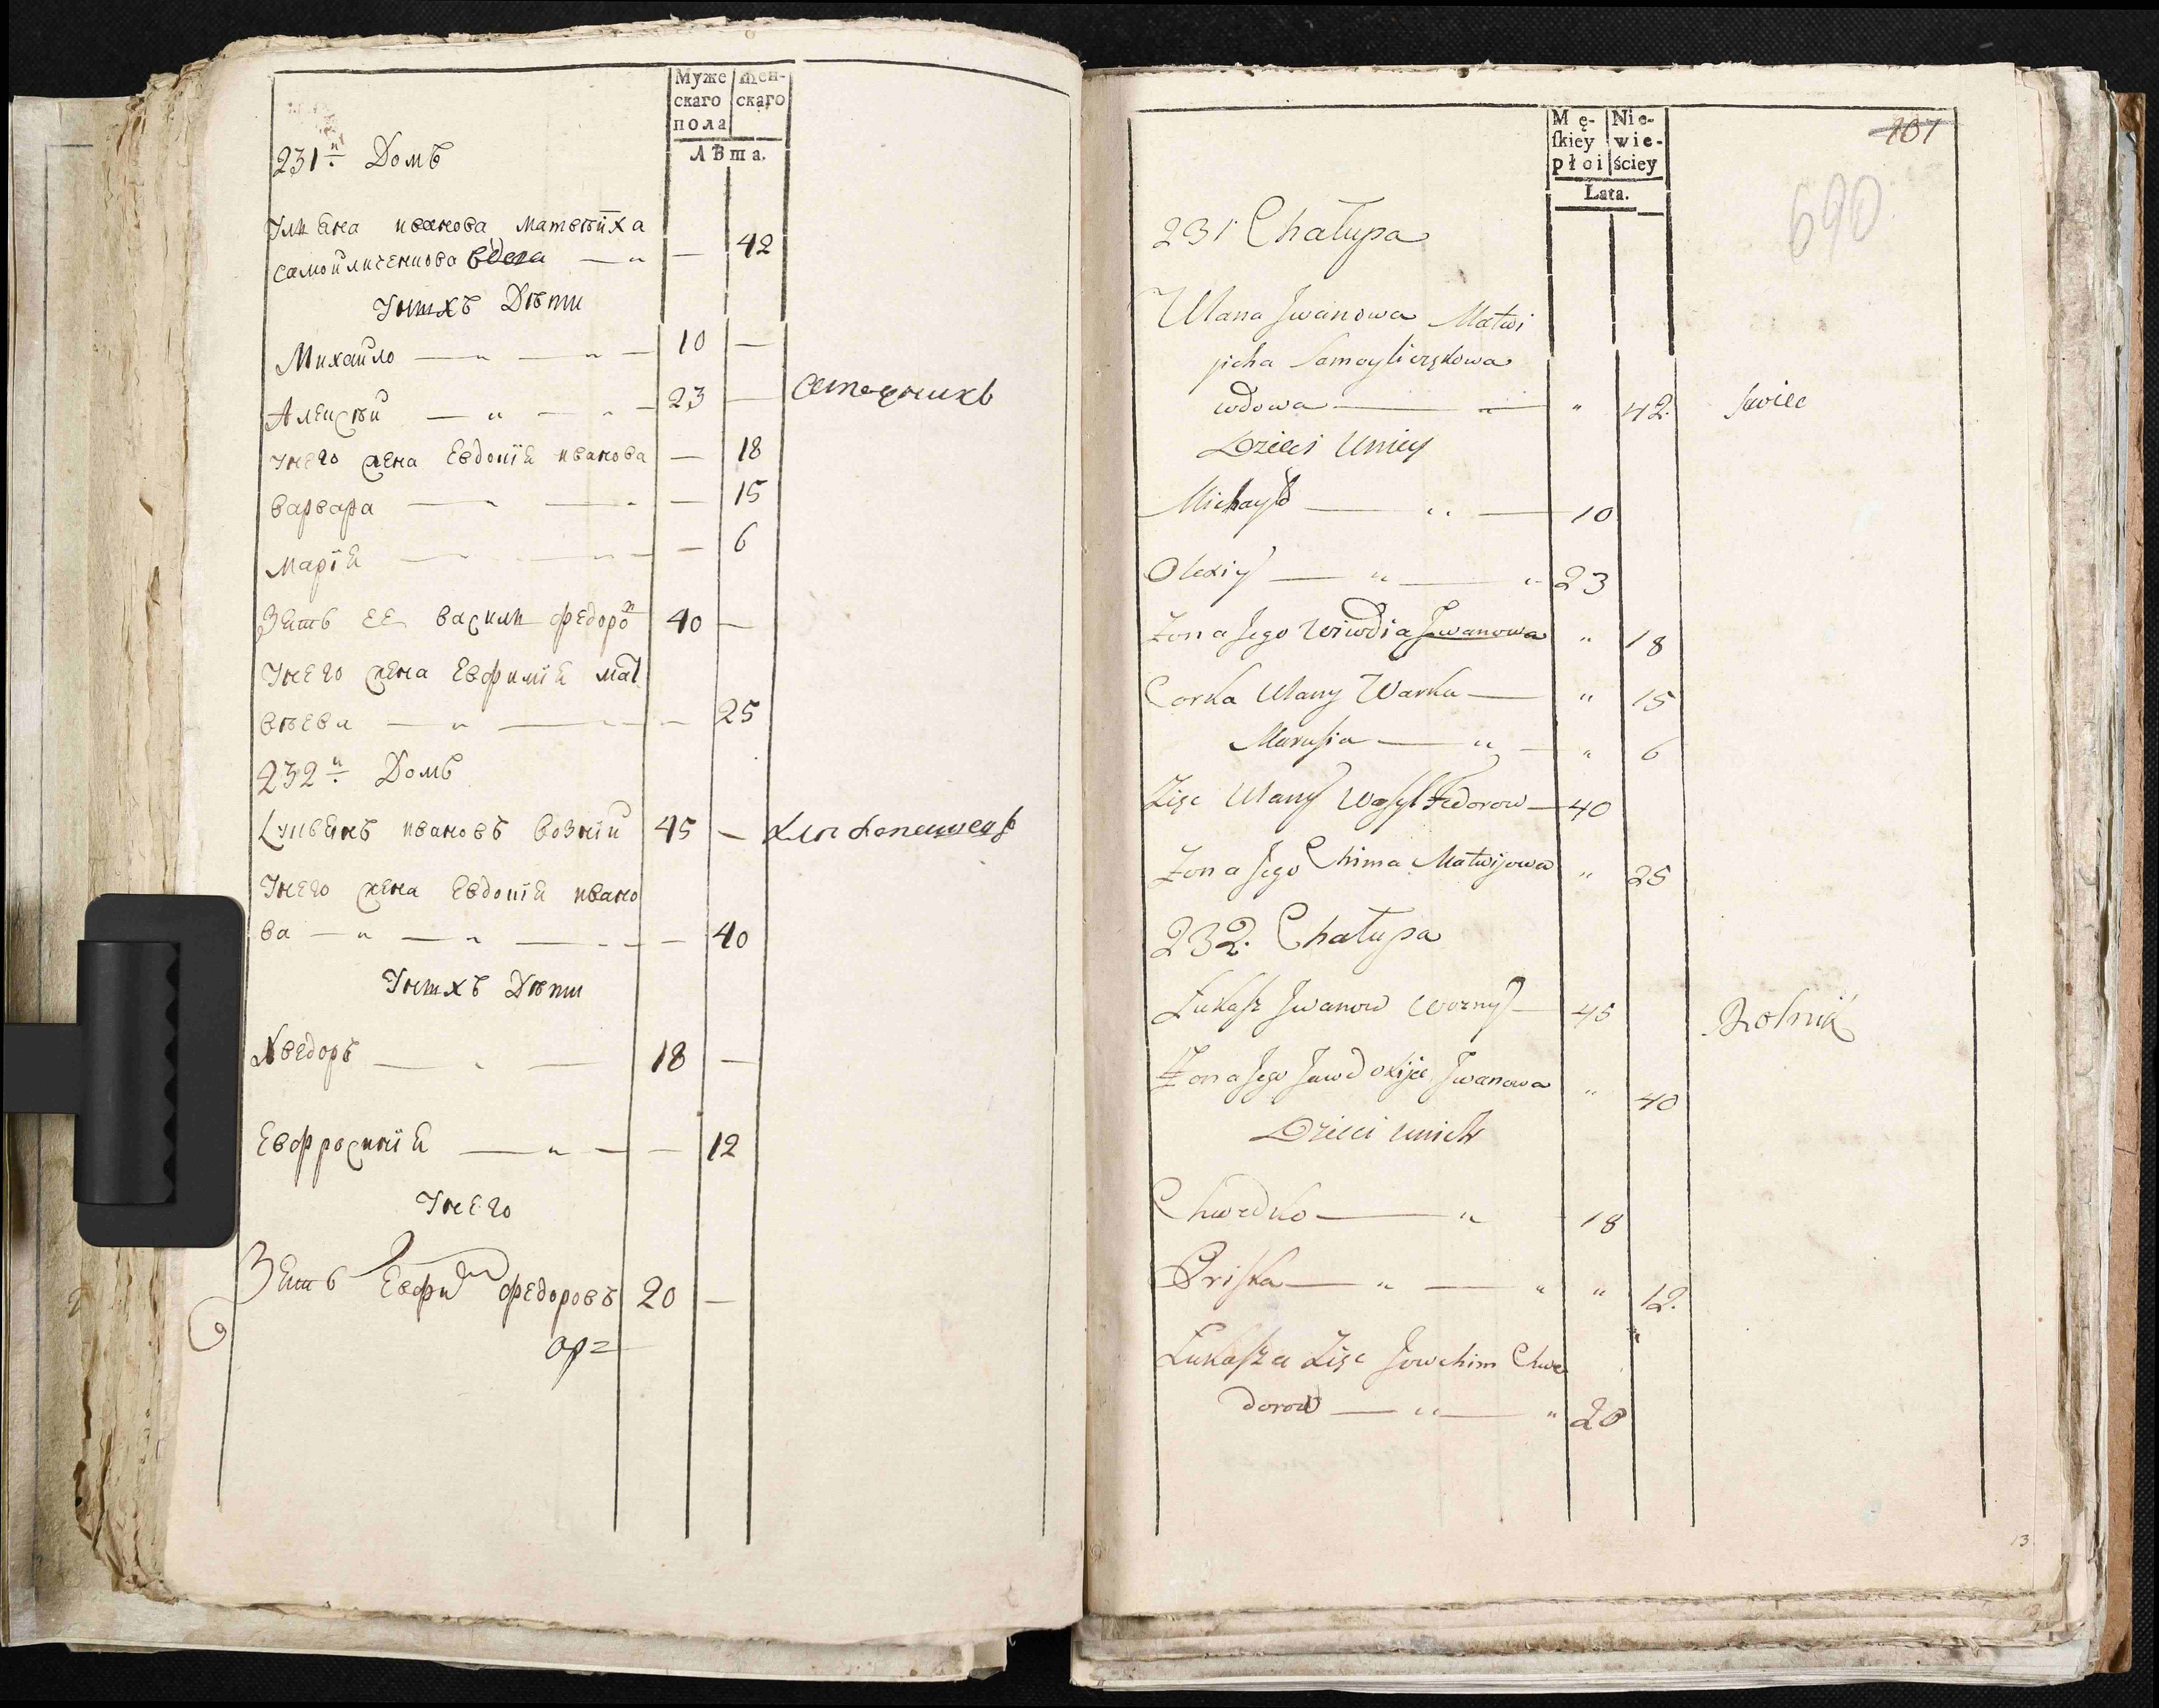 Муже
скаго
пола
жен-
скаго
Лѣта.
231й Домъ
Ульяна иванова матвѣиха
самойличенкова вдова — 42
Унихъ Дѣти
Михайло — 10 —
Алексѣй — 23 —
Унего жена Евдокія иванова — 18
варвара — 15
марія — 6
Зять ее василь федоро 40 —
Унего жена Евфимія мат
вѣева — 25
232й Домъ
Лукьянъ ивановъ возній 45 —
Унего жена Евдокія ивано
ва — 40
Унихъ Дѣти
Хведоръ — 18 —
Евфросинія — 12
Унего
Зять Евфи федоровъ 20 —
Mę-
ſkiey
płoi
Nie-
wie-
ściey
Lata.
101
690
231 Chałupa
Ulana Jwanowa Matwi
jicha Samoyliczkowa
wdowa — " 42. szwiec
Dzieci Uniey
Michayło — 10
Olexiy — 23
Zona Jego Wiwdia Jwanowa " 18
Corka Ulany Warka — " 15
Marusia — " 6
Zięc Ulany Wasyl Fedorow — 40
Zona Jego Chima Matwijowa " 25
232. Chałupa
Łukasz Jwanow Wozny — 45 Rolnik
Zona Jego Jawdokija Jwanowa " 40
Dzieci Unich
Chwedko — 18
Priska — " 12.
Łukasza Zięc Jowchim Chwe
dorow — " 20
13